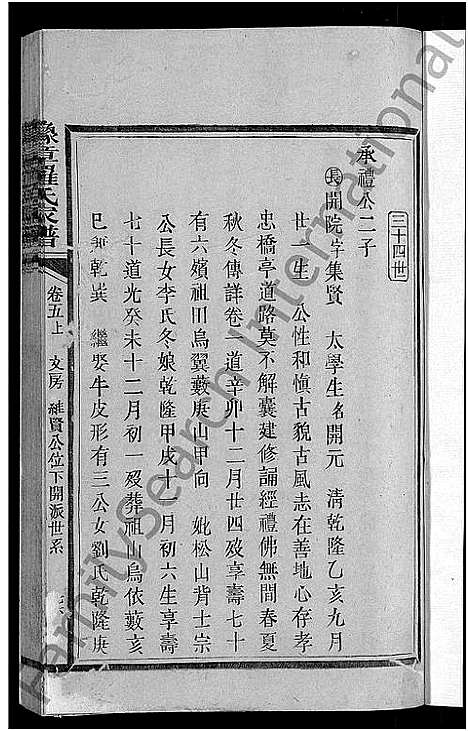 三十四世
承禮公二子
長開院字集賢 太學生名開元 清乾隆乙亥九月
廿一生 公性和愼古貌古風志在善地心存孝
忠橋亭道路莫不解囊建修誦經禮佛無間春夏
秋冬傳詳卷一道辛卯十二月廿四歿享壽七十
有六嬪祖田烏翼藪庚山甲向 妣松山背士宗
公長女李氏冬娘乾隆甲戌十一月初六生享壽
七十道光癸未十二月初一歿葬祖山烏依藪亥
巳兼乾巽 繼娶牛皮形有三公女劉氏乾隆庚
豫章羅氏家譜
卷五上 文房 維賢公位下開派世系
FamilySearch International